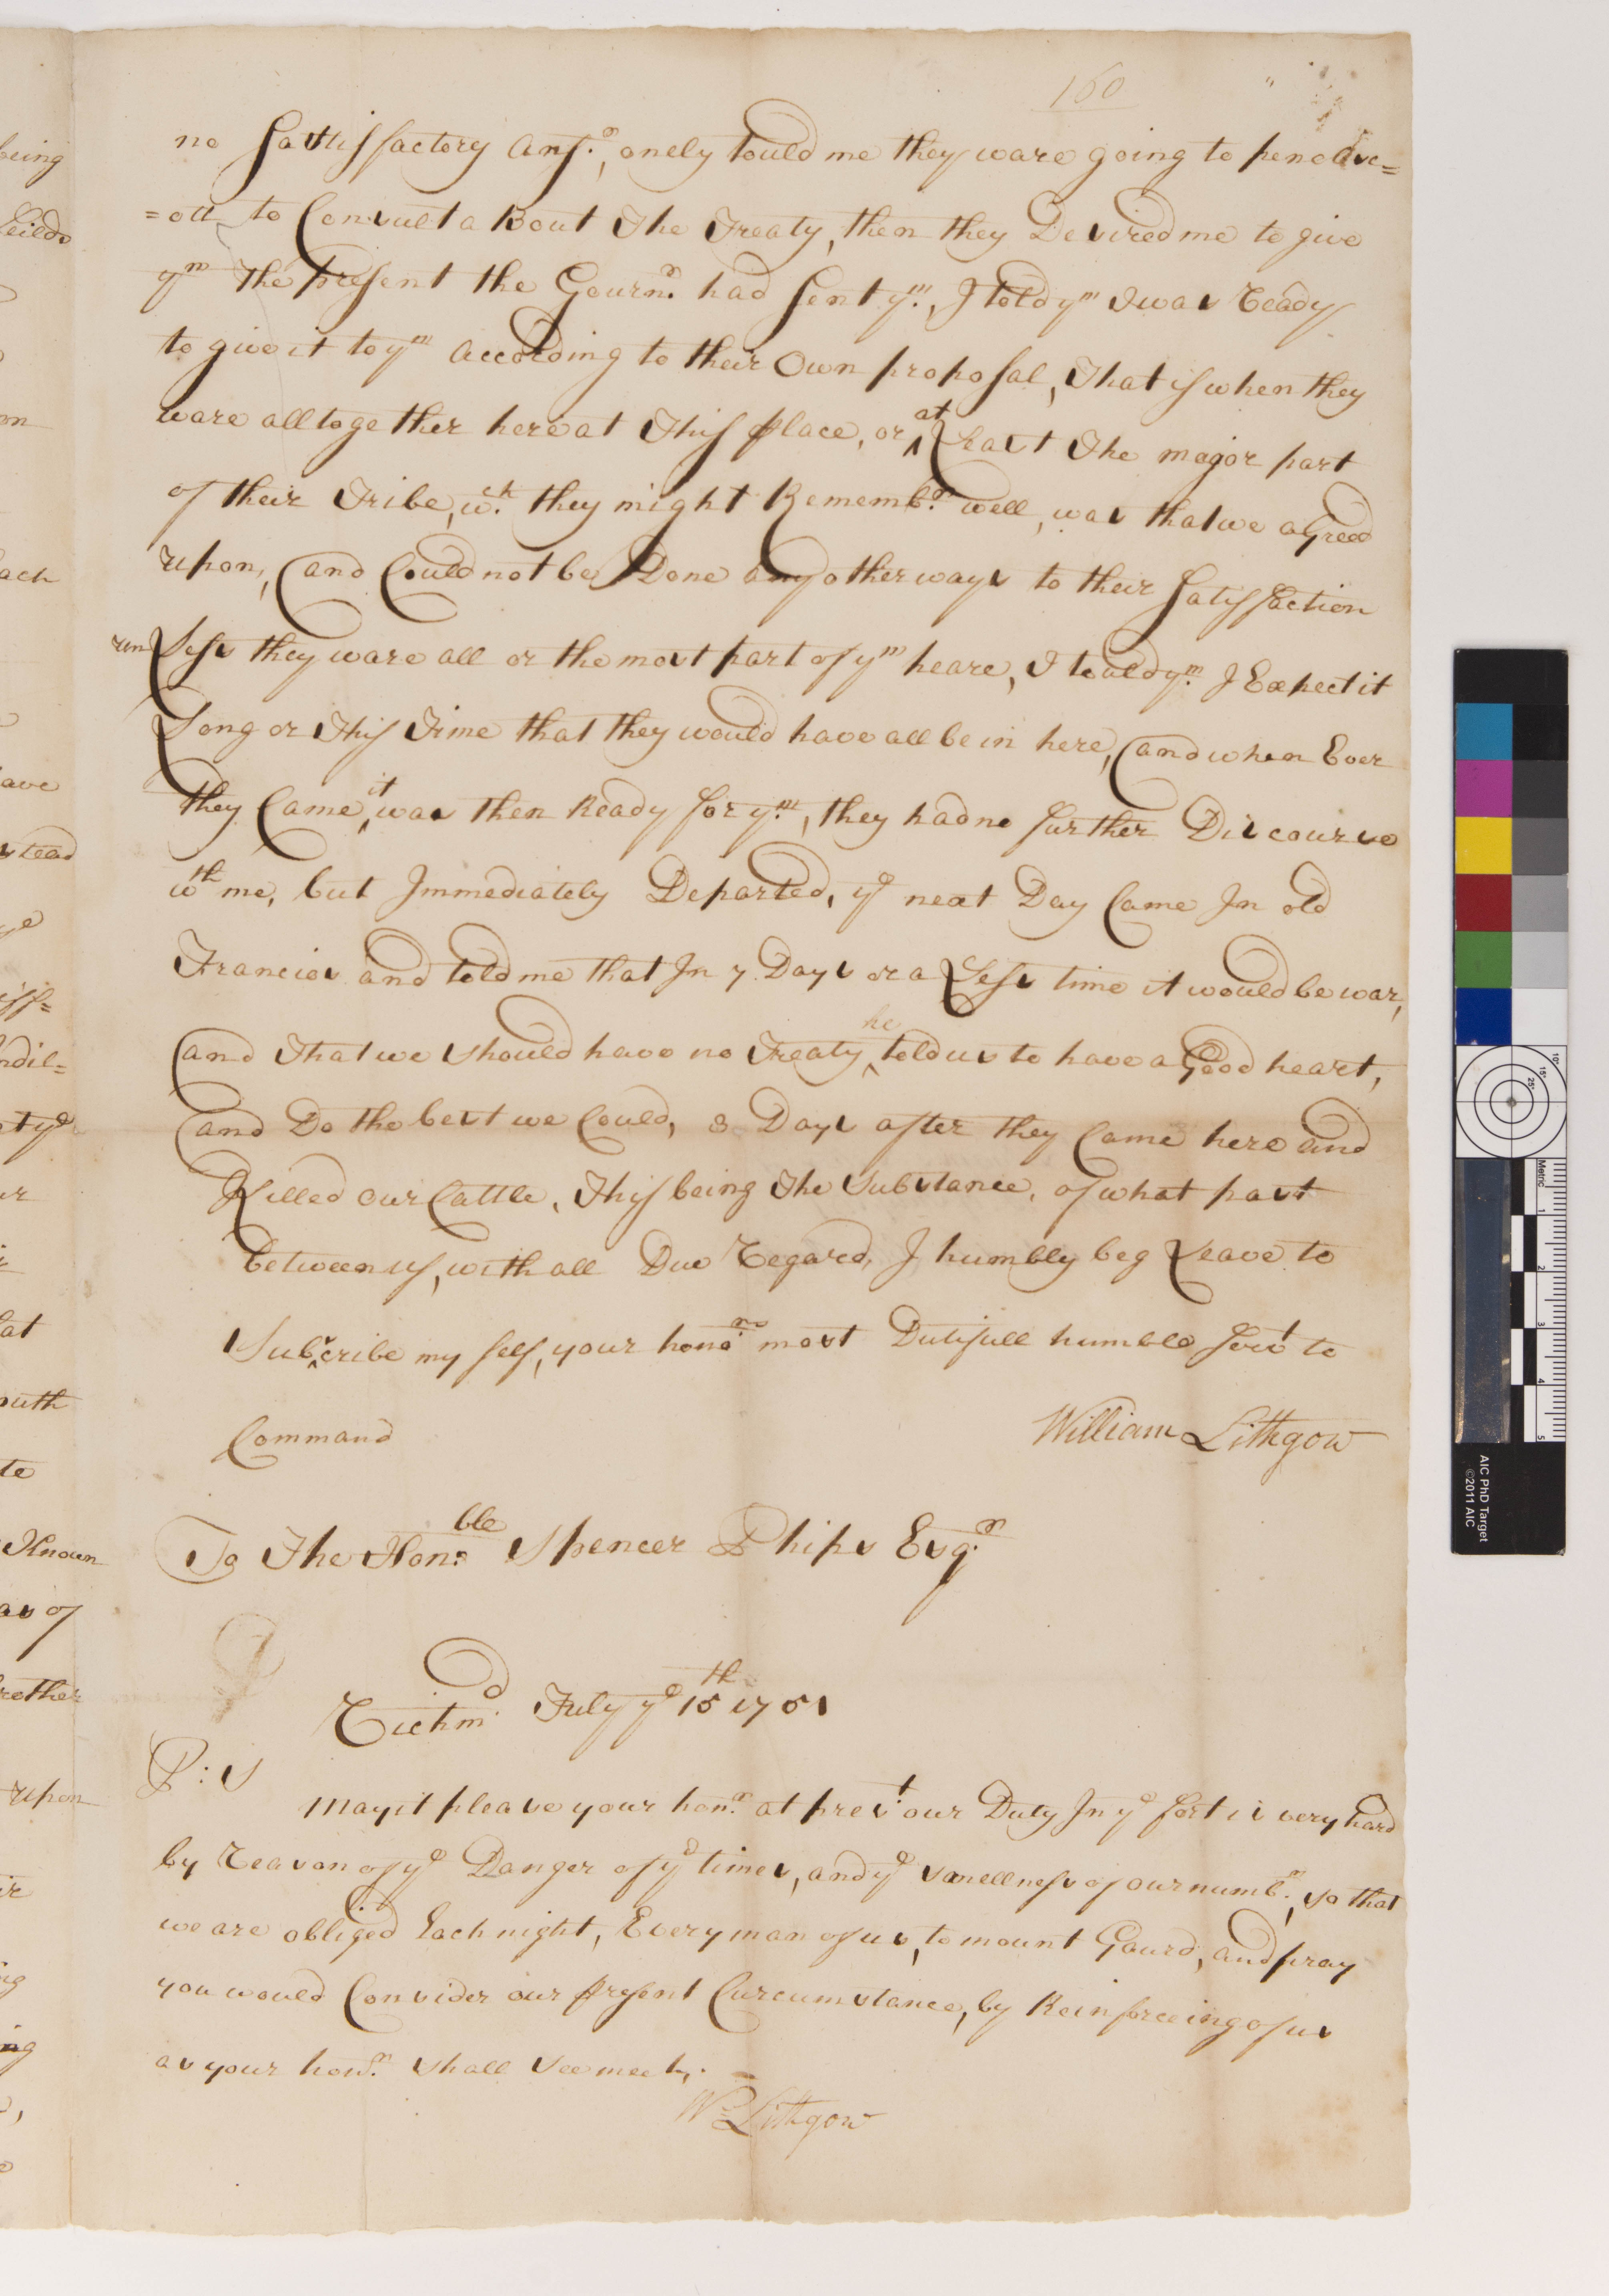 160
no Sattisfactory Ansr., onely tould me they ware going to penobsc=
=ott to Consult about The Treaty, then they Desired me to give
ym the present the Gournr. had sent ym., I told ym I was Ready
to give it to ym according to their Own proposal, That is when they
ware alltogether here at This place, or at Least The major part
of their Tribe, wch. they might Remembr. well, was that we aGreed
upon, and Could not be Done any other ways to their Satisfaction
unLess they ware all or the most part of ym heare, I tould ym. I Expect it
Long or This Time that they would have all be in here, and when Ever
they Came it was then Ready for ym., they had no further Discourse
wth me, but Immediately Departed, ye next Day Came In old
Francies and told me that In 7 Days or a Less time it would be war,
and That we should have no Treaty, he told us to have a Good heart,
and Do the best we Could, 8 Days after they Came here and
Killed our Cattle, This being The Substance, of what past
between us, with all Due Regard, I humbly beg Leave to
Subscribe my self, your honrs. most Dutifull humble Servt to
Command
William Lithgow
To The Honble. Spencer Phips Esqr.
Richmd. July ye 15th 1751
P:S
May it please your honr. at prest. our Duty In ye fort is very hard
by Reason of ye Danger of ye times, and ye smellness of our numbr., so that
we are obliged Each night, Every man of us, to mount Gaurd, and pray
you would Consider our present Curcumstance, by Reinforceing of us
as your honr. shall see meet,.
Wm Lithgow